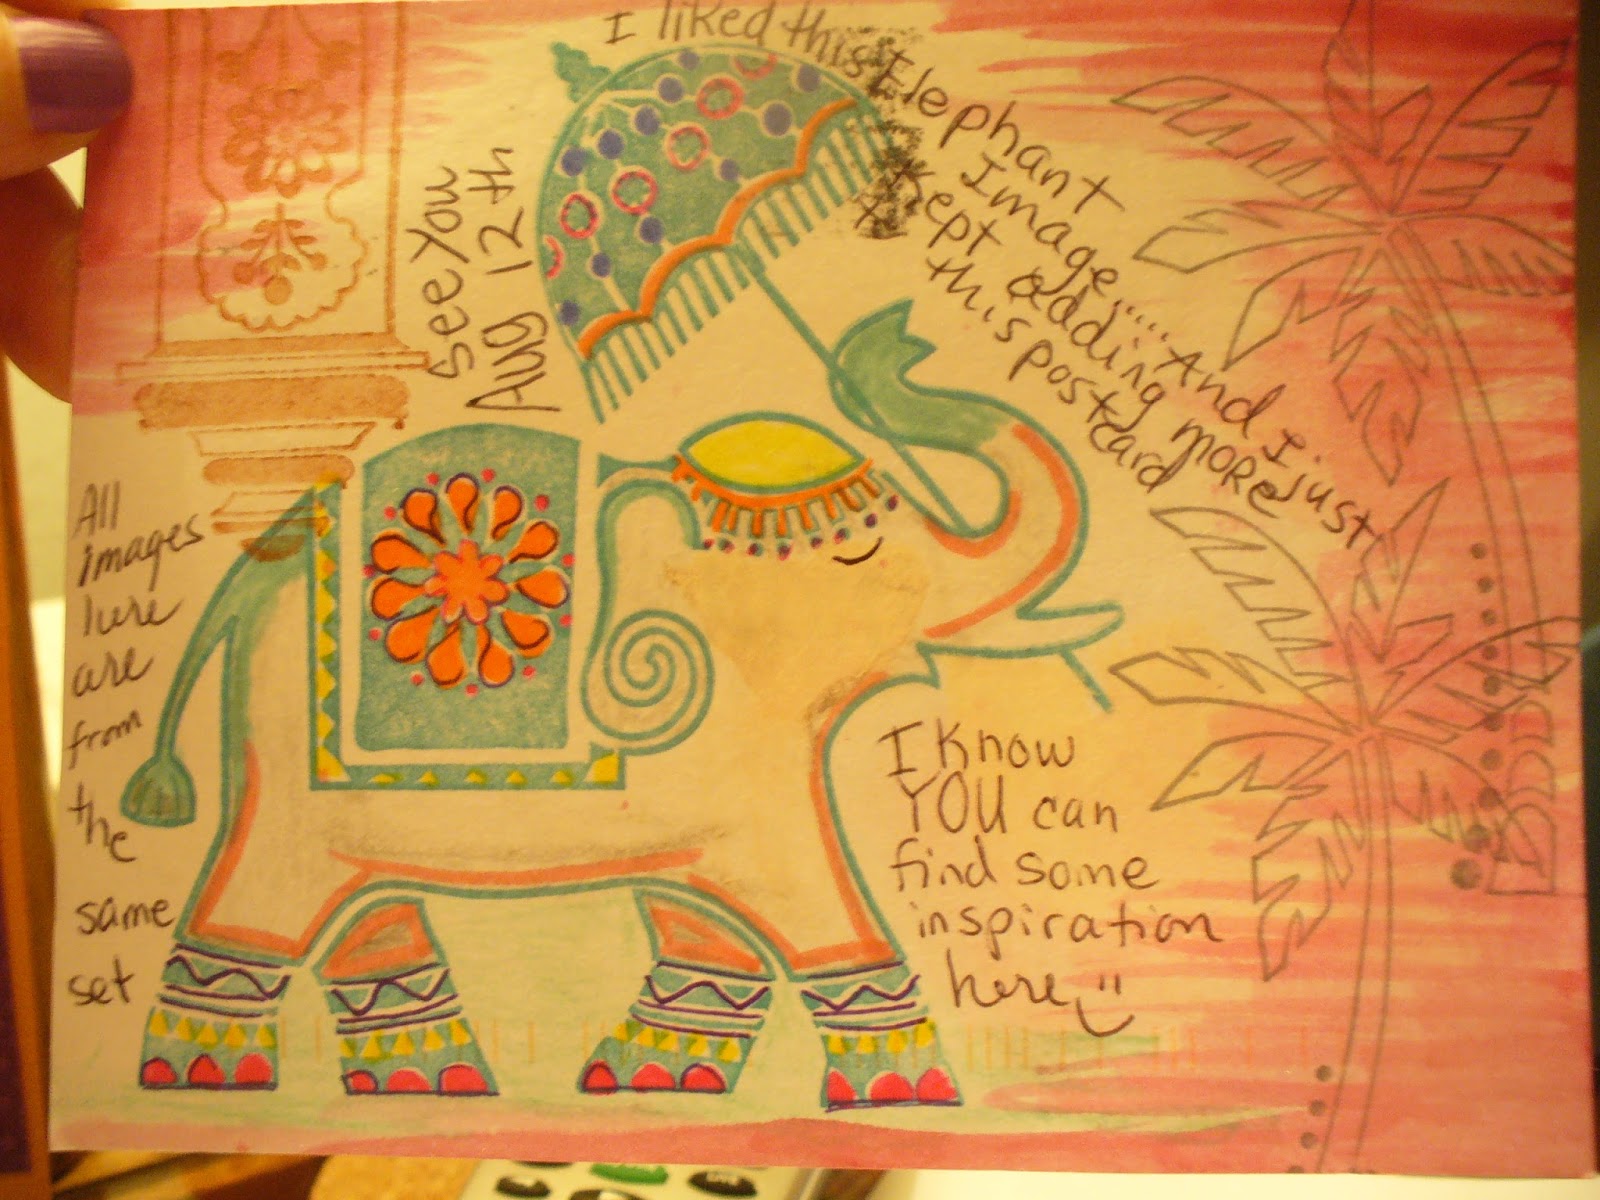 I liked this Elephant
Image..... And I just
kept adding more
this postcard
See You
Aug 12th
All
images
here
are
from
the
same
set
I know
YOU can
find some
inspiration
here